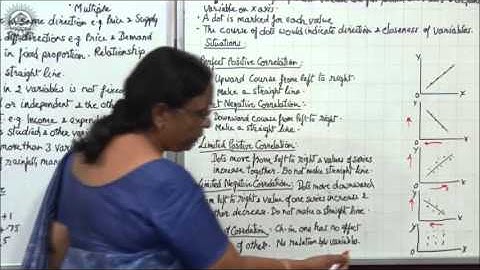 Multiple
in same direction e.g Price & Supply
diff. directions e.g Price & Demand
in fixed proportion. Relationship
straight line.
in 2 variables is not fixed
or independent & the oth
e.g Income & expend
studied & other varia
more than 3 Varia
of rainfall, man
+1
.75
variable on X axis.
• A dot is marked for each value
• The course of dots would indicate direction & closeness of variables.
Situations:
Perfect Positive Correlation:
Upward Course from left to right.
Make a straight line.
Negative Correlation:
Downward course from left to right.
Make a straight line.
Limited Positive Correlation:
Dots move from left to right & values of series
increase together. Do not make straight line.
Limited Negative Correlation: Dots move downward
left to right & value of one series increase &
other decrease. Do not make a straight line.
Correlation - Ch. in one has no effect
of others. No relation b/w variables.
Y
O
X
Y
O
X
Y
O
X
Y
O
X
Y
O
X